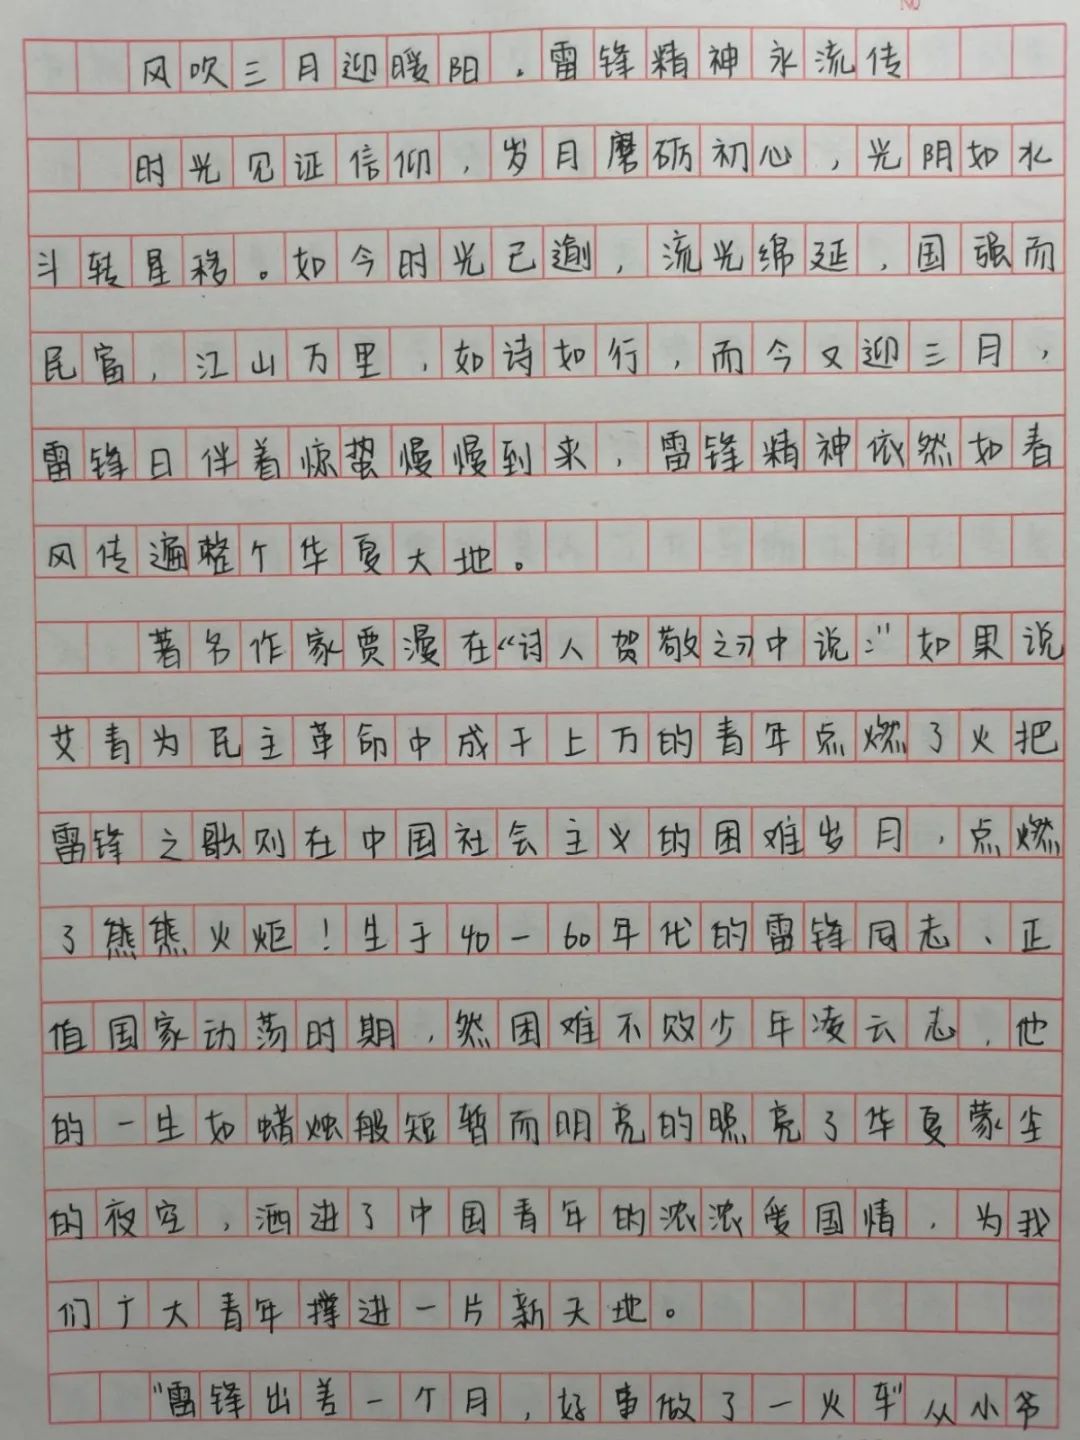 No
风吹三月迎暖阳.雷锋精神永流传
时光见证信仰,岁月磨砺初心,光阴如水
斗转星移。如今时光已逾,流光绵延,国强而
民富,江山万里,如诗如行,而今又迎三月,
雷锋日伴着惊蛰慢慢到来,雷锋精神依然如春
风传遍整个华夏大地。
著名作家贾漫在“诗人贺敬之》中说:“如果说
艾青为民主革命中成千上万的青年点燃了火把
雷锋之歌则在中国社会主义的困难岁月,点燃
了熊熊火炬!生于40一60年代的雷锋同志、正
值国家动荡时期,然困难不败少年凌云志,他
的一生如蜡烛般短暂而明亮的照亮了华夏蒙尘
的夜空,洒进了中国青年的浓浓爱国情,为我
们广大青年撑进一片新天地。
“雷锋出差一个月,好事做了一火车”从小爷